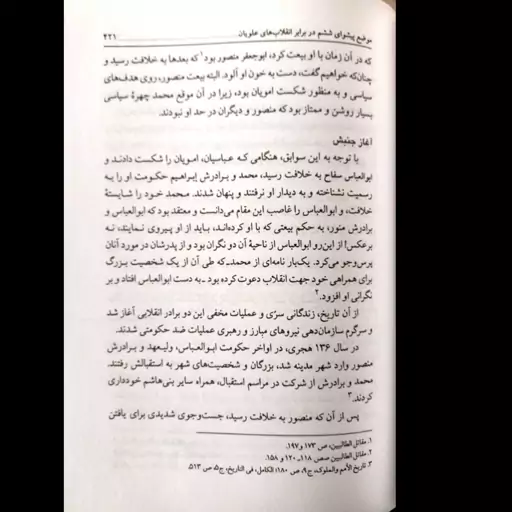 موضع پیشوای ششم در برابر انقلاب‌های علویان ۴۲۱
که در آن زمان با او بیعت کرد، ابوجعفر منصور بود۱ که بعدها به خلافت رسید و
چنان‌که خواهیم گفت، دست به خون او آلود. البته بیعت منصور، روی هدف‌های
سیاسی و به منظور شکست امویان بود، زیرا در آن موقع محمد چهرهٔ سیاسی
بسیار روشن و ممتاز بود که منصور و دیگران در حد او نبودند.
آغاز جنبش
با توجه به این سوابق، هنگامی که عباسیان، امویان را شکست دادند و
ابوالعباس سفاح به خلافت رسید، محمد و برادرش ابراهیم حکومت او را به
رسمیت نشناخته و به دیدار او نرفتند و پنهان شدند. محمد خود را شایستهٔ
خلافت، و ابوالعباس را غاصب این مقام می‌دانست و معتقد بود که ابوالعباس و
برادرش منور، به حکم بیعتی که با او کرده‌اند، باید از او پیروی نمایند، نه
برعکس! از این‌رو ابوالعباس از ناحیهٔ آن دو نگران بود و از پدرشان در مورد آنان
پرس‌وجو می‌کرد. یک‌بار نامه‌ای از محمدـ‌که طی آن از یک شخصیت بزرگ
برای همراهی خود جهت انقلاب دعوت کرده بود ـ به دست ابوالعباس افتاد و بر
نگرانی او افزود.۲
از آن تاریخ، زندگانی سرّی و عملیات مخفی این دو برادر انقلابی آغاز شد
و سرگرم سازمان‌دهی نیروهای مبارز و رهبری عملیات ضد حکومتی شدند.
در سال ۱۳۶ هجری، در اواخر حکومت ابوالعباس، ولیعهد و برادرش
منصور وارد شهر مدینه شد، بزرگان و شخصیت‌های شهر به استقبالش رفتند.
محمد و برادرش از شرکت در مراسم استقبال، همراه سایر بنی‌هاشم خودداری
کردند.۳
پس از آن که منصور به خلافت رسید، جست‌وجوی شدیدی برای یافتن
۱. مقاتل الطالبیین، ص ۱۷۳ و ۱۹۷.
۲. مقاتل الطالبیین صص ۱۱۸ـ ۱۲۰ و ۱۵۸.
۳. تاریخ الأمم والملوک، ج۹، ص ۱۸۰؛ الکامل، فی التاریخ، ج۵، ص ۵۱۳.